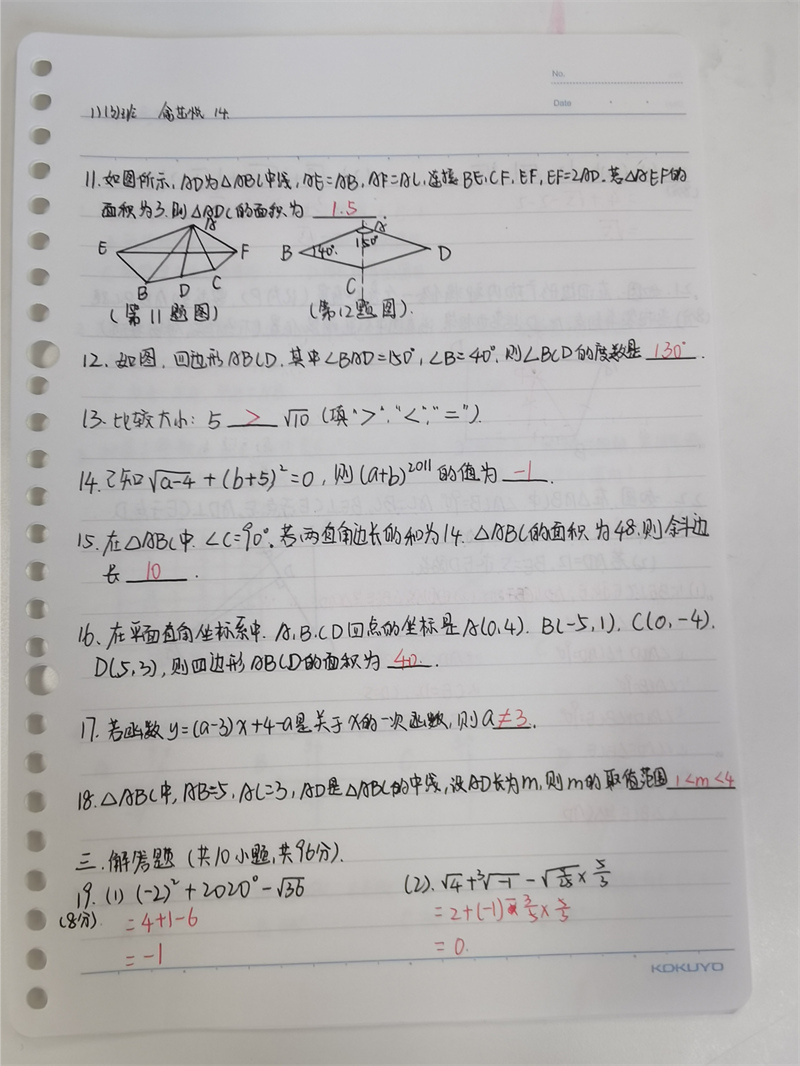 No.
Date
14
11.如图所示,AD为△ABC中线,AE=AB,AF=AC,连接BE,CF,EF,EF=2AD.若△AEF的
面积为3.则△ADC的面积为 1.5 .
A
E F
B D C
(第11题图)
A
B 40° 150° D
C
(第12题图).
12.如图.四边形ABCD.其中∠BAD=150°,∠B=40°.则∠BCD的度数是 130° .
13.比较大小: 5 > √10 (填">","<","=").
14.已知√a-4+(b+5)²=0,则(a+b)²⁰¹¹的值为 -1 .
15.在△ABC中.∠C=90°.若两直角边长的和为14.△ABC的面积为48.则斜边
长 10 .
16.在平面直角坐标系中.A,B,CD四点的坐标是A(0,4).B(-5,1).C(0,-4).
D(5,3),则四边形ABCD的面积为 40 .
17.若函数y=(a-3)x+4-a是关于x的一次函数,则a ≠3 .
18.△ABC中,AB=5,AC=3,AD是△ABC的中线,设AD长为m,则m的取值范围 1<m<4
三.解答题(共10小题,共96分).
19.(1) (-2)²+2020⁰-√36 (2).√4+³√-1-√9/25×5/3
(8分). =4+1-6 =2+(-1)-3/5×5/3
=-1 =0.
KOKUYO